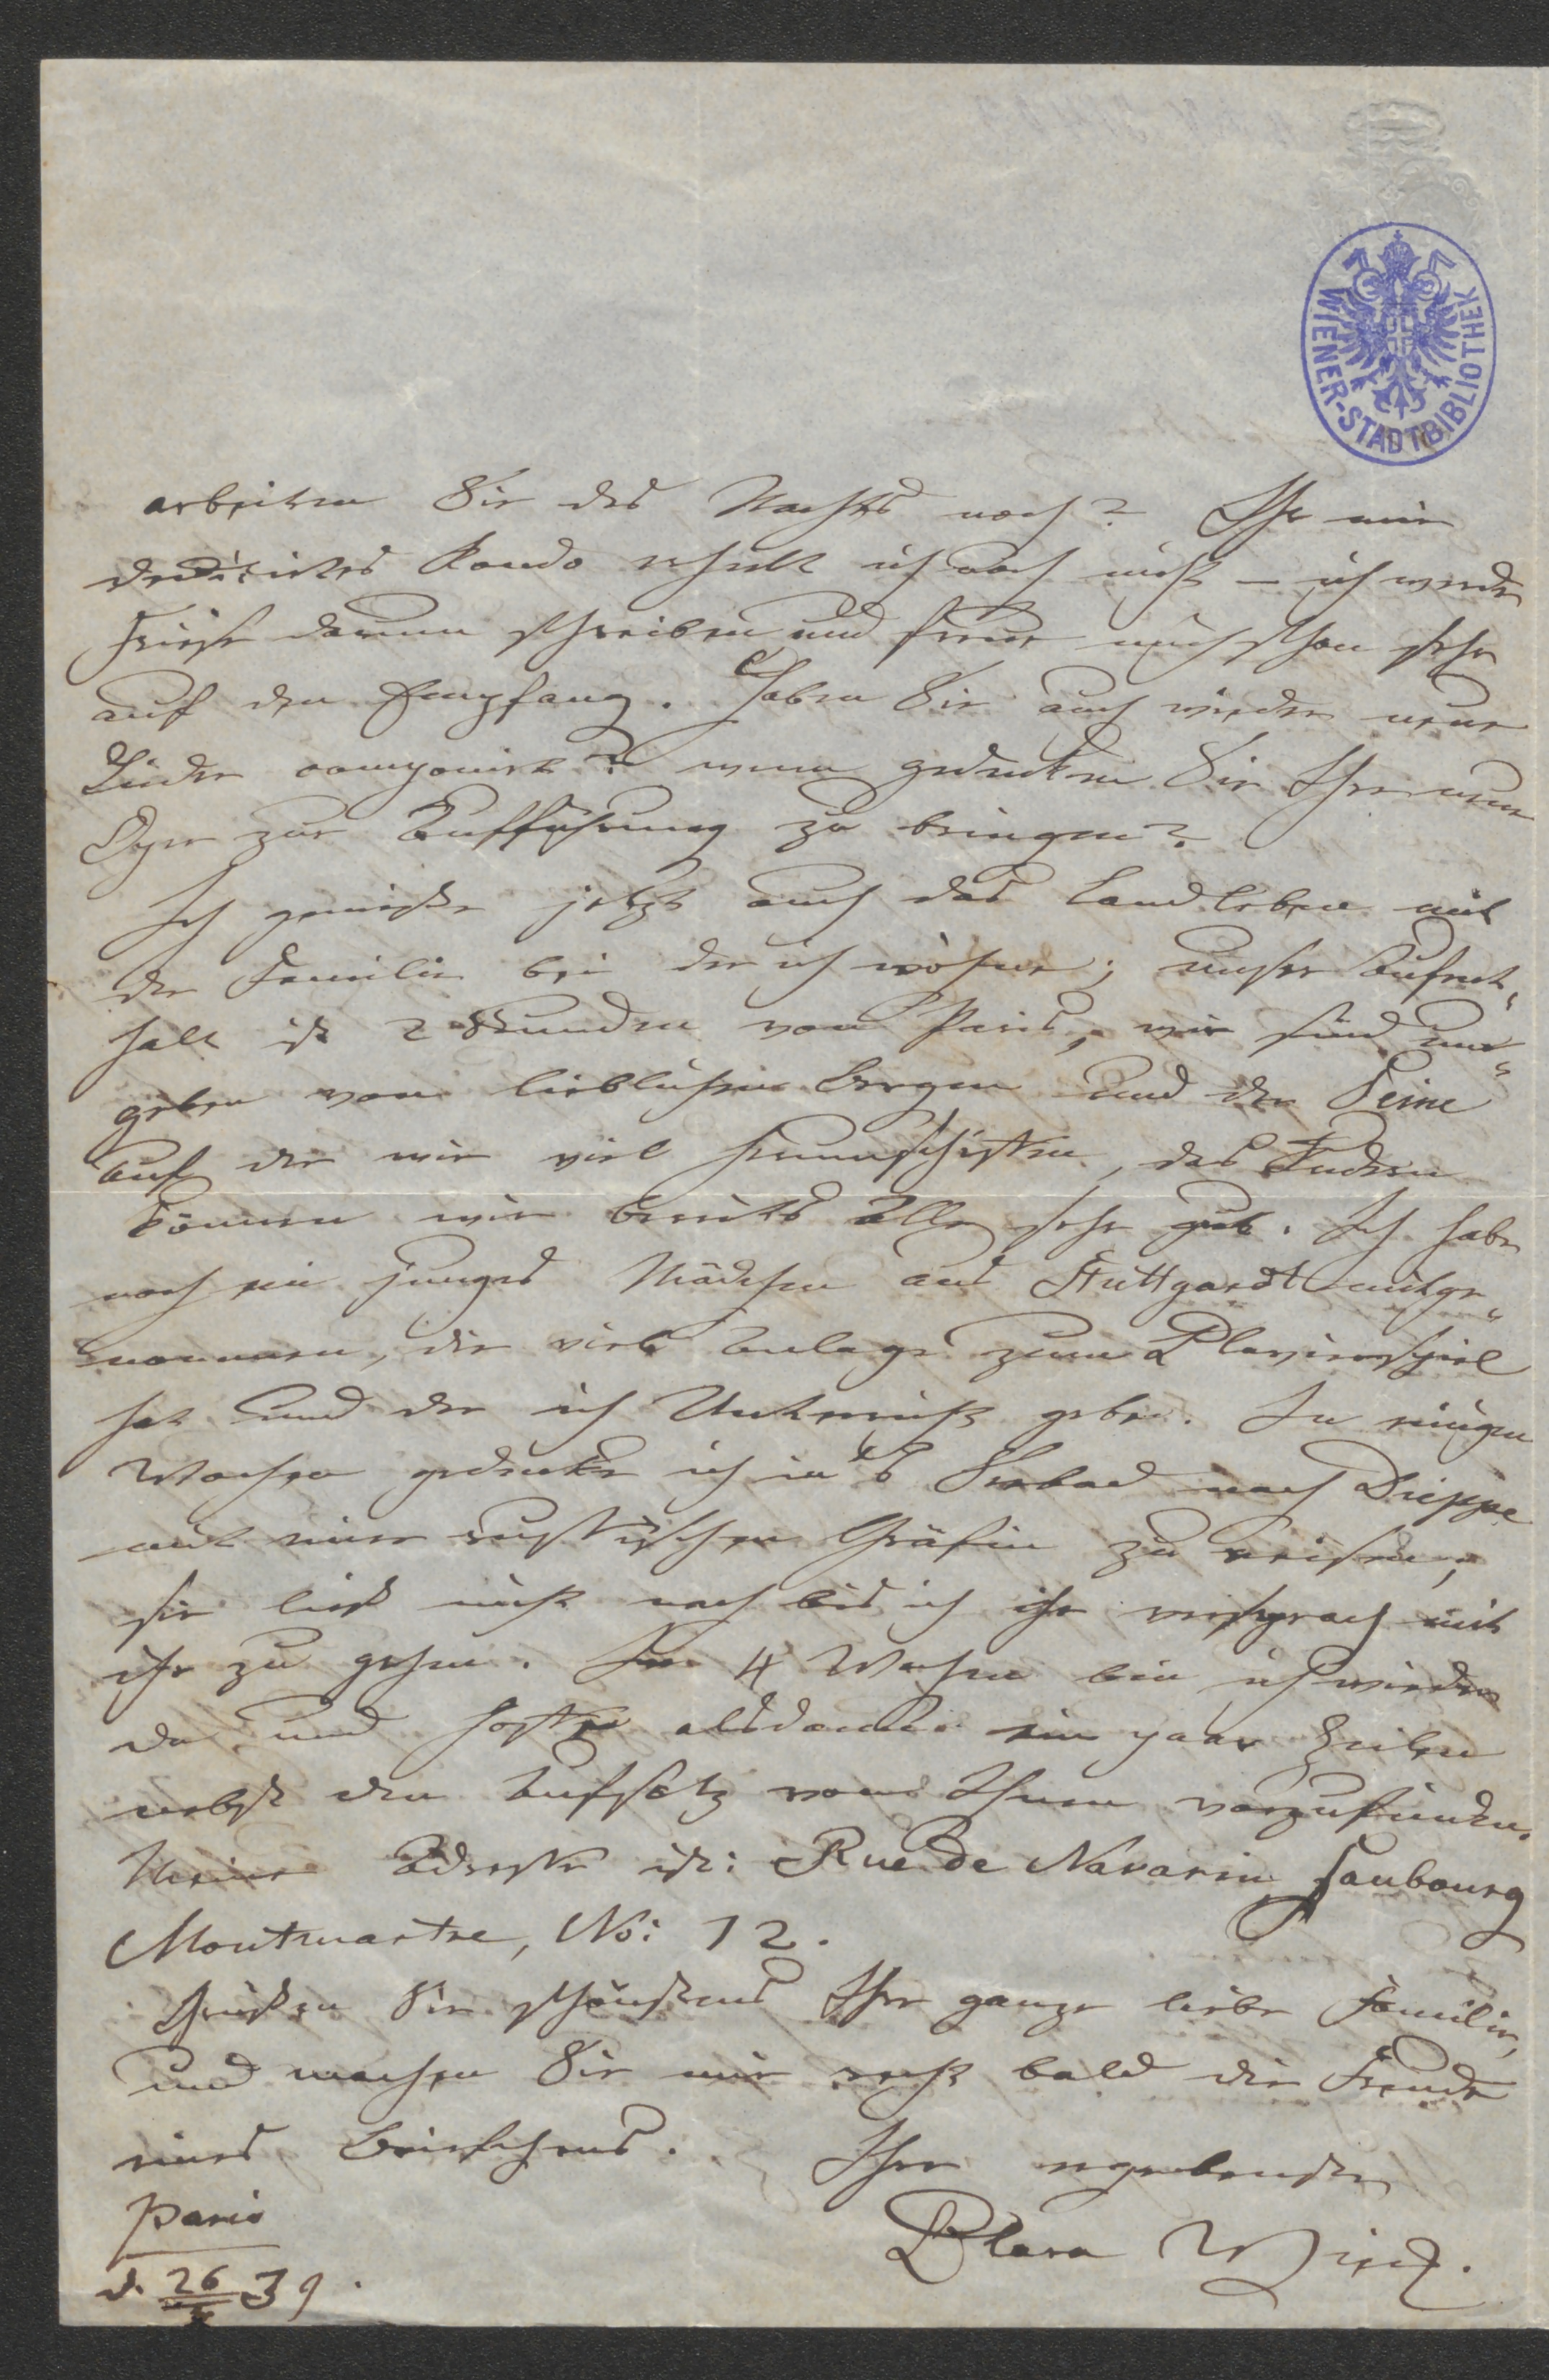 WIENER-STADTBIBLIOTHEK
arbeiten Sie des Nachts noch? Ihr mir
dedicirtes Rondo erhielt ich noch nicht – ich werde
Friese darum schreiben und freue mich schon sehr
auf den Empfang. Haben Sie auch wieder neue
Lieder componirt? wenn gedenken Sie Ihre neue
Oper zur Aufführung zu bringen?
Ich genieße jetzt auch das Landleben mit
der Familie bei der ich wohne; unser Aufent„
halt ist 2 Stunden von Paris, wir sind um„
geben von lieblichen Bergen und der Seine
auf der wir viel herumschiffen, das Rudern
können wir bereits Alle sehr gut. Ich habe
noch ein junges Mädchen aus Stuttgardt mitge„
nommen, die viel Anlage zum Clavierspiel
hat und der ich Unterricht gebe. In einigen
Wochen gedenke ich in's Seebad nach Dieppe
mit einer russischen Gräfin zu reisen,
sie ließ nicht nach bis ich ihr versprach mit
ihr zu gehen. In 4 Wochen bin ich wieder
da und hoffe alsdann ein paar Zeilen
nebst den Aufsatz von Ihnen vorzufinden.
Meine Adresse ist: Rue de Navarin faubourg
Montmartre, No: 12.
Grüßen Sie schönstens Ihre ganze liebe Familie,
und machen Sie mir recht bald die Freude
eines Briefchens. Ihre ergebenste
Paris
Clara Wieck.
d. 26 39.